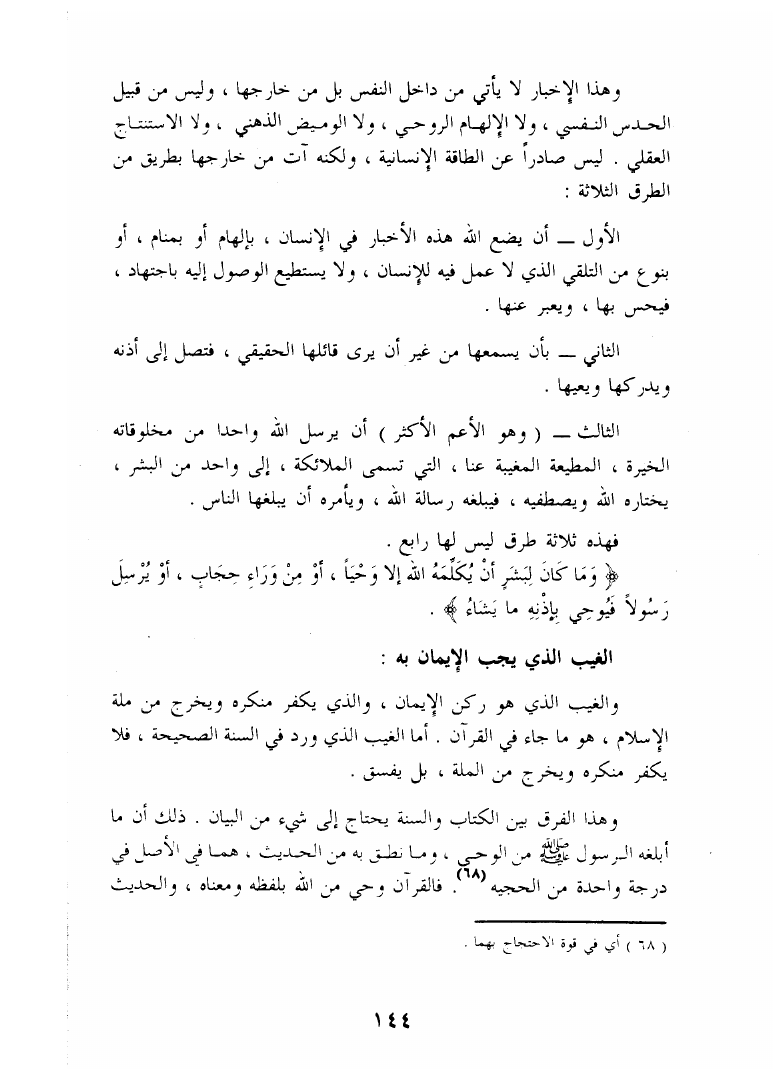 وهذا الإخبار لا يأتي من داخل النفس بل من خارجها ، وليس من قبيل
الحدس النفسي ، ولا الإلهام الروحي ، ولا الوميض الذهني ، ولا الاستنتاج
العقلي . ليس صادراً عن الطاقة الإنسانية ، ولكنه آت من خارجها بطريق من
الطرق الثلاثة :
الأول — أن يضع الله هذه الأخبار في الإنسان ، بإلهام أو بمنام ، أو
بنوع من التلقي الذي لا عمل فيه للإنسان ، ولا يستطيع الوصول إليه باجتهاد ،
فيحس بها ، ويعبر عنها .
الثاني — بأن يسمعها من غير أن يرى قائلها الحقيقي ، فتصل إلى أذنه
ويدركها ويعيها .
الثالث — ( وهو الأعم الأكثر ) أن يرسل الله واحدا من مخلوقاته
الخيرة ، المطيعة المغيبة عنا ، التي تسمى الملائكة ، إلى واحد من البشر ،
يختاره الله ويصطفيه ، فيبلغه رسالة الله ، ويأمره أن يبلغها الناس .
فهذه ثلاثة طرق ليس لها رابع .
﴿ وَمَا كَانَ لِبَشَرٍ أَنْ يُكَلِّمَهُ الله إلا وَحْيَاً ، أوْ مِنْ وَرَاءِ حِجَابٍ ، أوْ يُرْسِلَ
رَسُولاً فَيُوحِي بِإِذْنِهِ ما يَشَاءُ ﴾ .
الغيب الذي يجب الإيمان به :
والغيب الذي هو ركن الإيمان ، والذي يكفر منكره ويخرج من ملة
الإسلام ، هو ما جاء في القرآن . أما الغيب الذي ورد في السنة الصحيحة ، فلا
يكفر منكره ويخرج من الملة ، بل يفسق .
وهذا الفرق بين الكتاب والسنة يحتاج إلى شيء من البيان . ذلك أن ما
أبلغه الرسول ﷺ من الوحي ، وما نطق به من الحديث ، هما في الأصل في
درجة واحدة من الحجيه (٦٨). فالقرآن وحي من الله بلفظه ومعناه ، والحديث
( ٦٨ ) أي في قوة الاحتجاج بهما .
١٤٤